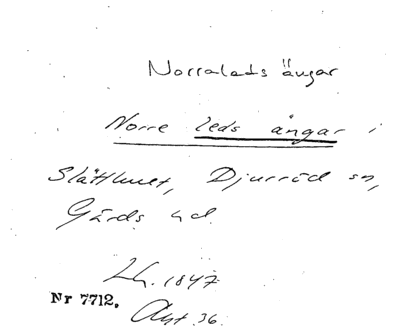 Norraleds ängar
Norre leds ängar i
Slätthult, Djurröd sn,
Gärds hd.
Lh. 1847
Nr 7712.
Akt 36.